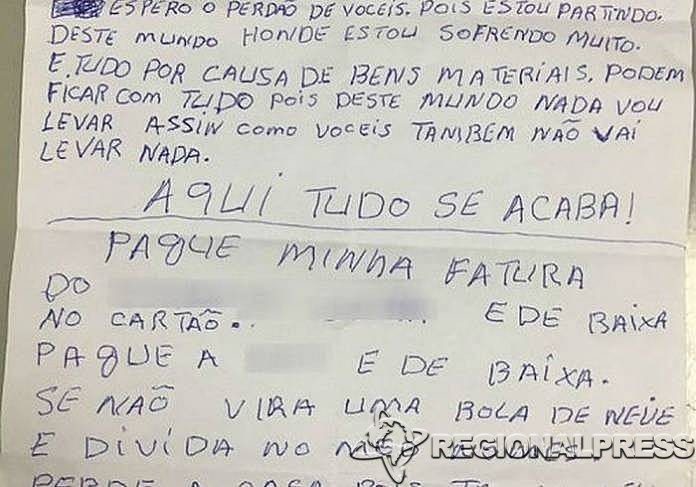 ESPERO O PERDÃO DE VOCEIS. POIS ESTOU PARTINDO.
DESTE MUNDO HONDE ESTOU SOFRENDO MUITO.
E TUDO POR CAUSA DE BENS MATERIAIS. PODEM
FICAR COM TUDO POIS DESTE MUNDO NADA VOU
LEVAR ASSIN COMO VOCEIS TANBEM NÃO VAI
LEVAR NADA.
AQUI TUDO SE ACABA!
PAGUE MINHA FATURA
DO
NO CARTÃO.. E DE BAIXA
PAGUE A E DE BAIXA.
SE NAÕ VIRA UMA BOLA DE NEVE
E DIVIDA NO MEU
REGIONALPRESS